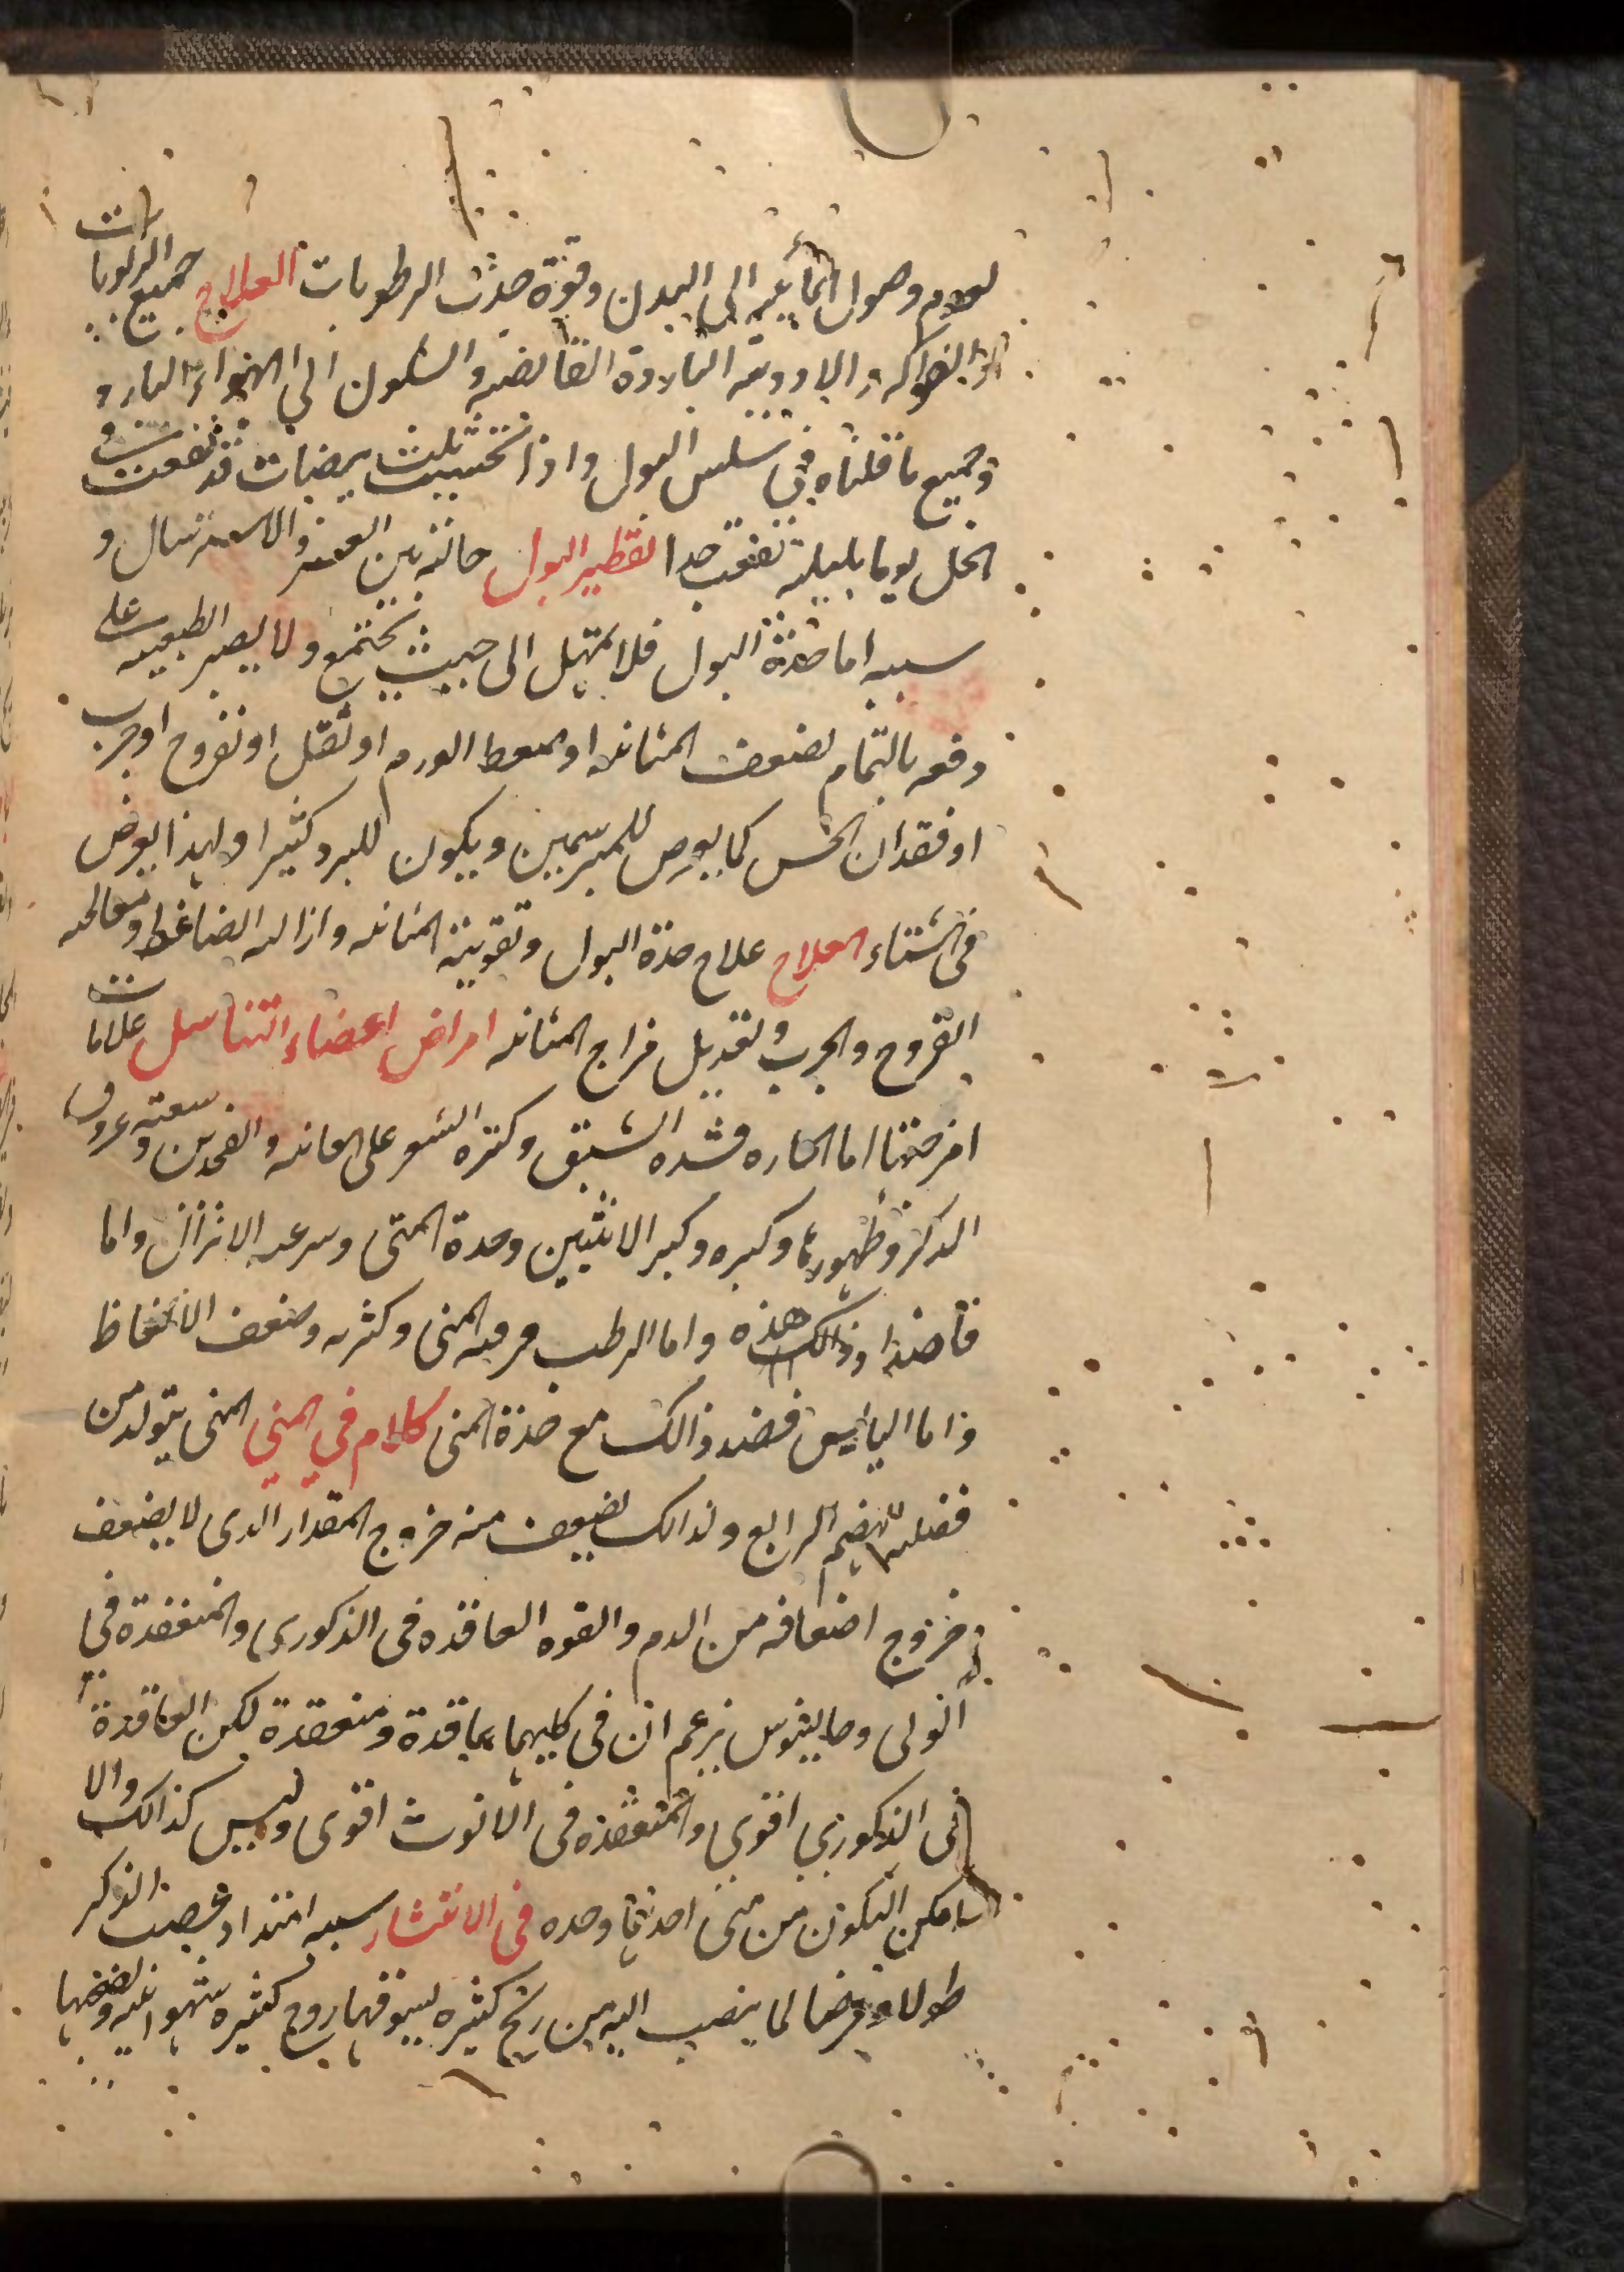 لعدم وصول المائيه الى البدن وقوة حدث الرطوبات العلاج جميع الربوبات
الفواكه والادويه الباردة القابضه والسكون الى الهواء البارد
وجميع ما قلناه في سلس البول واذا تحسيت ثلث بيضات قد نقعت في
الخل يوما بليلة نفعت جدا تقطير البول حالة بين العسر والاسترسال و
سببه اما حدة البول فلا يمهل الى حيث يجتمع ولا يصبر الطبيعه على
دفعه بالتمام لضعف المثانه او لضغط الورم او ثقل او قروح او جرب
او فقدان الحس كما يعرض للمبرسمين ويكون للبرد كثيرا ولهذا يعرض
في الشتاء العلاج علاج حدة البول وتقوية المثانه وازاله الضاغط ومعالجه
القروح والجرب وتعديل مزاج المثانه امراض اعضاء التناسل علامات
امزجتها اما الحاره فشده الشبق وكثره الشعر على العانه والفخدين وسعته عروق
الذكر وظهورها وكبره وكبر الانثيين وحدة المنى وسرعه الانزال واما
فاضداد ذالك هذه واما الرطب فرقه المنى وكثرته وضعف الانعاظ
واما اليابس فضد ذالك مع حدة المنى كلام في المني المنى يتولد من
فضله الهضم الرابع ولذالك يضعف منه خروج المقدار الدى لا يضعف
خروج اضعافه من الدم والقوه العاقده في الذكورى والمنعقدة في
انوثى وجالينوس يزعم ان في كليهما عاقدة ومنعقدة لكن العاقدة
في الذكوري اقوي والمنعقده في الانوث اقوى وليس كذالك والا
لامكن التكون من منى احدهما وحده في الانتشار سببه امتداد عصب الذكر
طولا وعرضا لما ينصب اليه من ريح كثيره يسوقها روح كثيره شهوانيه